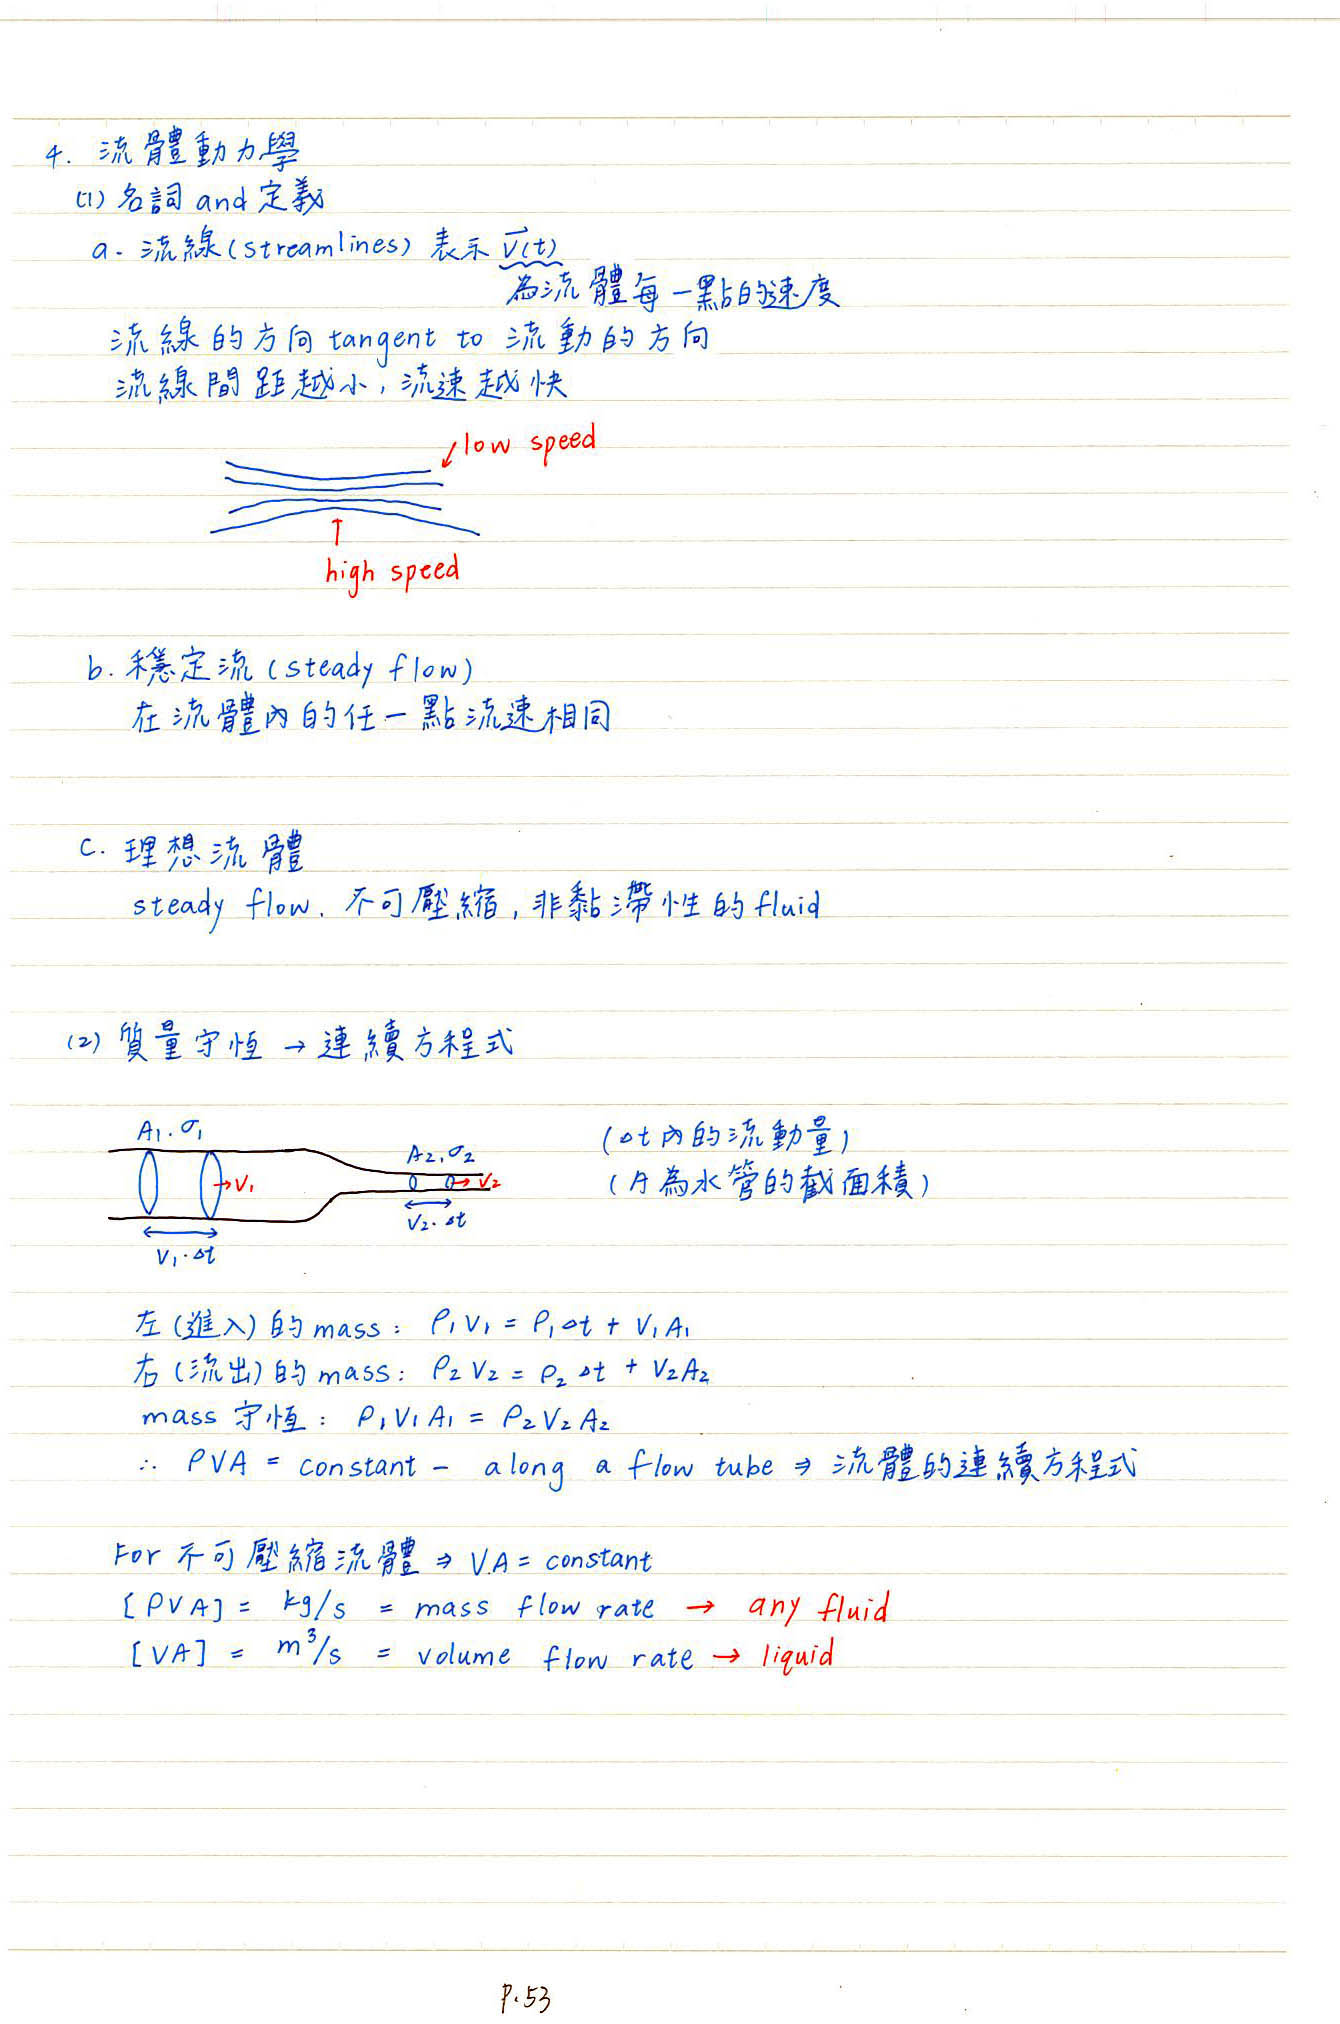 4. 流體動力學
(1) 名詞 and 定義
a. 流線 (streamlines) 表示 V⃗(t)
為流體每一點的速度
流線的方向 tangent to 流動的方向
流線間距越小，流速越快
low speed
high speed
b. 穩定流 (steady flow)
在流體內的任一點流速相同
c. 理想流體
steady flow. 不可壓縮, 非黏滯性的 fluid
(2) 質量守恆 → 連續方程式
A₁. σ₁
A₂, σ₂
(Δt 內的流動量)
→V₁
→V₂
(A 為水管的截面積)
V₂. Δt
V₁. Δt
左 (進入) 的 mass: ρ₁V₁ = ρ₁Δt + V₁A₁
右 (流出) 的 mass: ρ₂V₂ = ρ₂Δt + V₂A₂
mass 守恆: ρ₁V₁A₁ = ρ₂V₂A₂
∴ ρVA = constant - along a flow tube ⇒ 流體的連續方程式
For 不可壓縮流體 ⇒ V.A = constant
[ρVA] = kg/s = mass flow rate → any fluid
[VA] = m³/s = volume flow rate → liquid
P.53